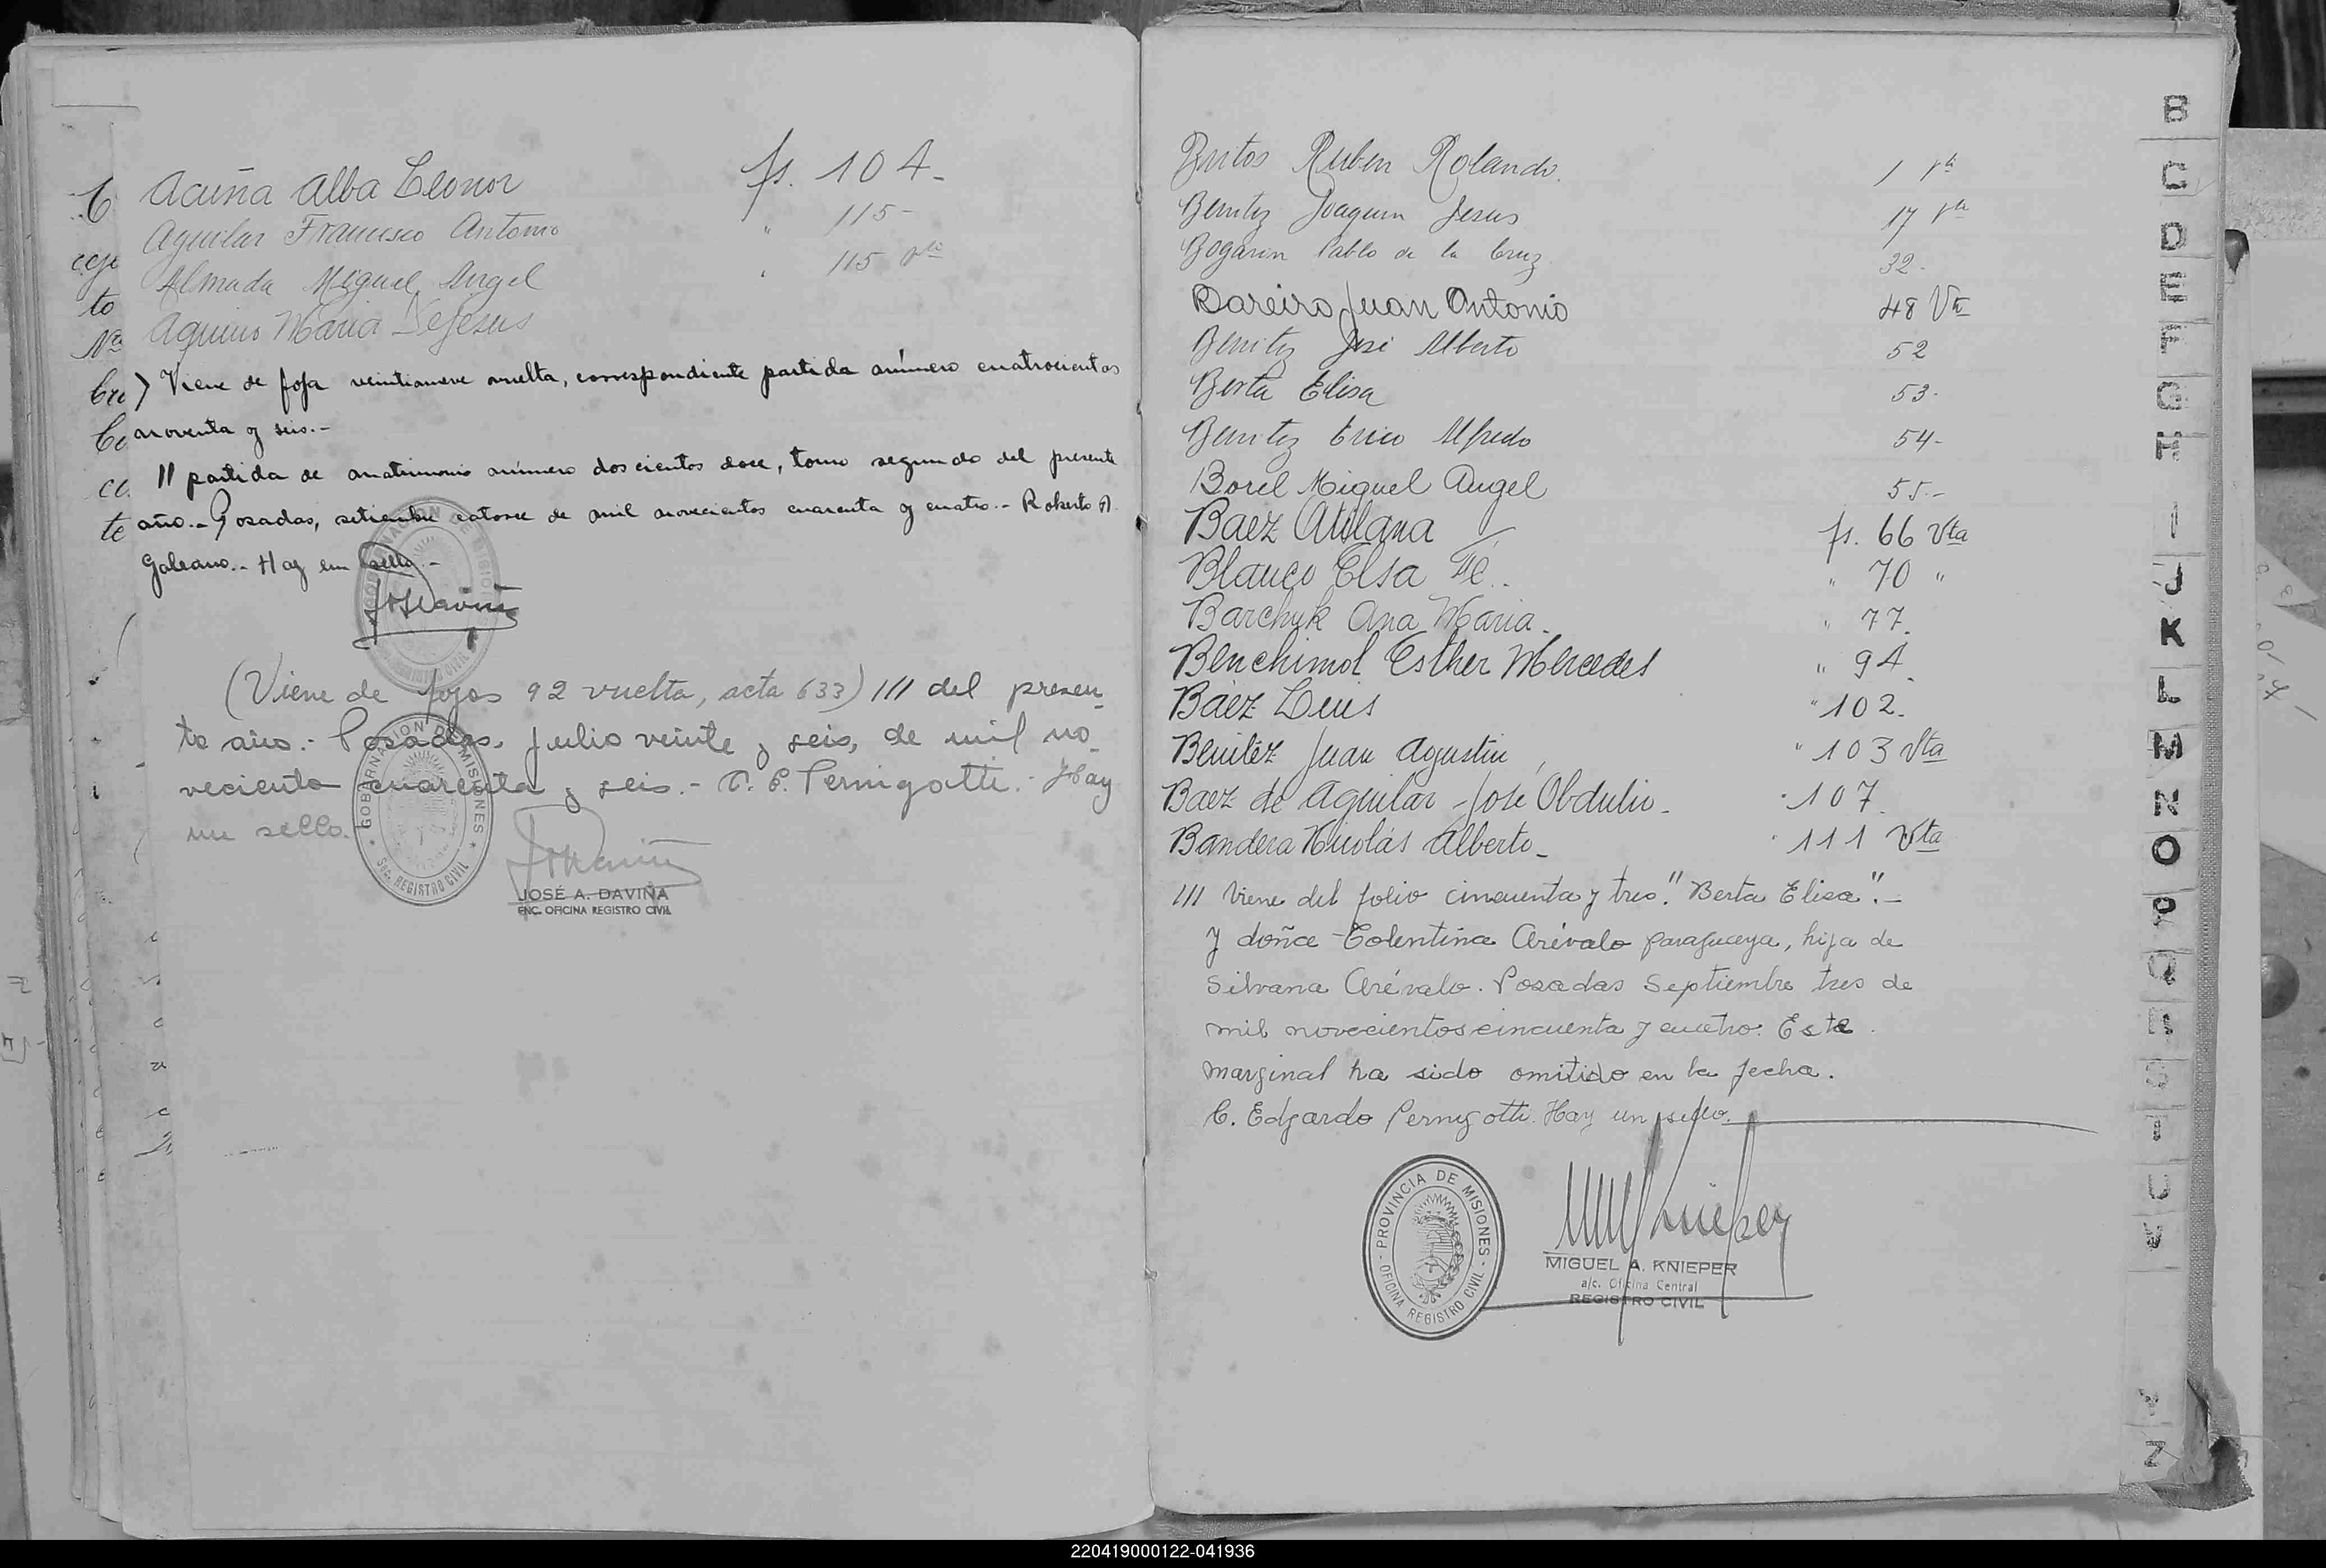 Acuña Alba Leonor fs. 104-
Aguilar Francisco Antonio " 115-
Almada Miguel Angel " 115 vta
Aquino Maria DeJesus
) Viene de foja veintinueve vuelta, correspondiente partida número cuatrocientos
noventa y seis.-
// partida de matrimonio número doscientos doce, tomo segundo del presente
año.- Posadas, setiembre catorce de mil novecientos cuarenta y cuatro.- Roberto A.
Galeano.- Hay un sello.-
(Viene de fojas 92 vuelta, acta 633) /// del presen-
te año.- Posadas, Julio veinte y seis, de mil no-
veciento cuarenta y seis.- C. E. Pernigotti.- Hay
un sello.
GOBERNACION DE MISIONES
Sec. REGISTRO CIVIL
JOSÉ A. DAVIÑA
ENC. OFICINA REGISTRO CIVIL
Britos Ruben Rolando. 1 vta
Benitez Joaquin Jesus 17 vta
Bogarin Pablo de la Cruz 32-
Bareiro Juan Antonio 48 Vta
Benitez José Alberto 52
Berta Elisa 53-
Benitez Erico Alfredo 54-
Borel Miguel Angel 55.-
Baez Atilana fs. 66 Vta
Blanco Elsa Fé.. " 70 "
Barchuk Ana Maria. " 77.
Benchimol Esther Mercedes " 94.
Báez Luis " 102.
Benitez Juan Agustin " 103 Vta
Baez de Aguilar José Obdulio. " 107.
Bandera Nicolás Alberto- " 111 Vta
/// Viene del folio cincuenta y tres." Berta Elisa".-
y doña Tolentina Arévalo paraguaya, hija de
Silvana Arévalo. Posadas Septiembre tres de
mil novecientos cincuenta y cuatro. Este
marginal ha sido omitido en la fecha.
C. Edgardo Pernigotti. Hay un sello.
PROVINCIA DE MISIONES
OFICINA REGISTRO CIVIL
MIGUEL A. KNIEPER
a/c. Oficina Central
REGISTRO CIVIL
B
C
D
E
F
G
H
I
J
K
L
M
N
O
P
Q
R
S
T
U
V
Y
Z
220419000122-041936